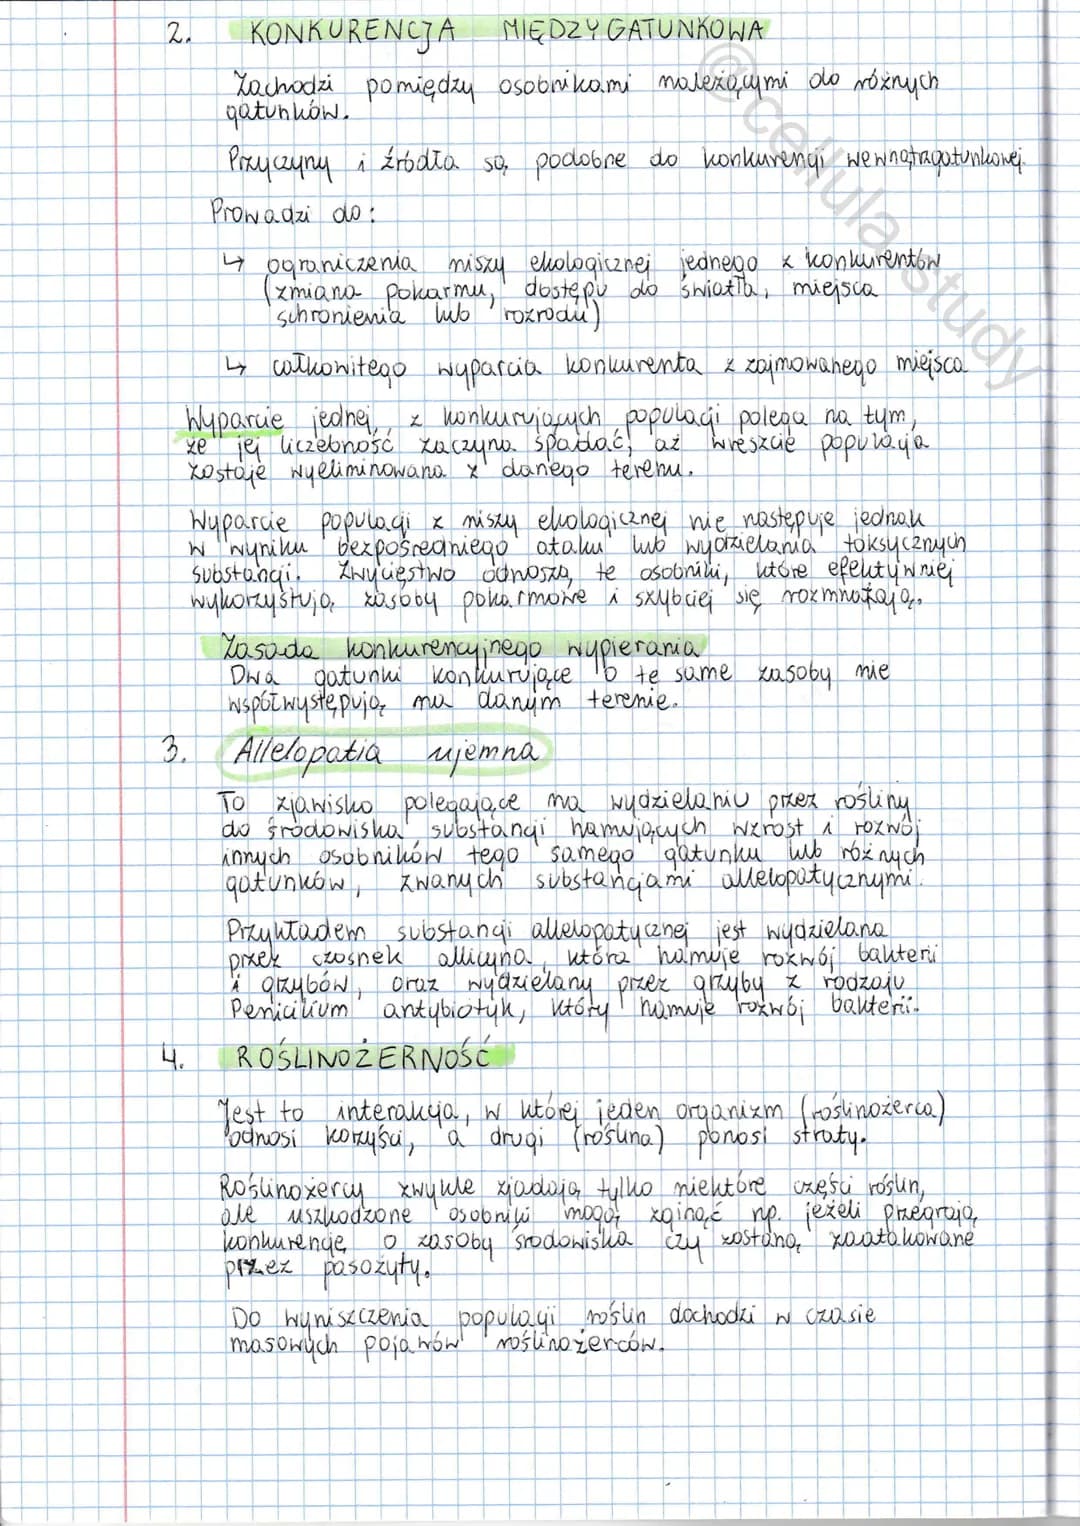 2. KONKURENCJA MIĘDZYGATUNKOWA
Zachodzi pomiędzy osobnikami należącymi do różnych
gatunków.
Przyczyny i źródła są podobne do konkurencji wewnątrzgatunkowej.
Prowadzi do:
↳ ograniczenia niszy ekologicznej jednego z konkurentów
(zmiana pokarmu, dostępu do światła, miejsca
schronienia lub rozrodu)
↳ całkowitego wyparcia konkurenta z zajmowanego miejsca
Wyparcie jednej z konkurujących populacji polega na tym,
że jej liczebność zaczyna spadać, aż wreszcie populacja
zostaje wyeliminowana z danego terenu.
Wyparcie populacji z niszy ekologicznej nie następuje jednak
w wyniku bezpośredniego ataku lub wydzielania toksycznych
substancji. Zwycięstwo odnoszą te osobniki, które efektywniej
wykorzystują zasoby pokarmowe i szybciej się rozmnażają.
Zasada konkurencyjnego wypierania
Dwa gatunki konkurujące o te same zasoby nie
współwystępują na danym terenie.
3. Allelopatia ujemna
To zjawisko polegające na wydzielaniu przez rośliny
do środowiska substancji hamujących wzrost i rozwój
innych osobników tego samego gatunku lub różnych
gatunków, zwanych substancjami allelopatycznymi.
Przykładem substancji allelopatycznej jest wydzielana
przez czosnek allicyna, która hamuje rozwój bakterii
i grzybów, oraz wydzielany przez grzyby z rodzaju
Penicilium antybiotyk, który hamuje rozwój bakterii.
4. ROŚLINOŻERNOŚĆ
Jest to interakcja, w której jeden organizm (roślinożerca)
odnosi korzyści, a drugi (roślina) ponosi straty.
Roślinożercy zwykle zjadają tylko niektóre części roślin,
ale uszkodzone osobniki mogą zginąć np. jeżeli przegrają
konkurencję o zasoby środowiska czy zostaną zaatakowane
przez pasożyty.
Do wyniszczenia populacji roślin dochodzi w czasie
masowych pojawów roślinożerców.
@cellula.study